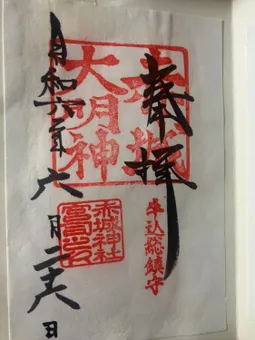 奉拝
牛込総鎮守
赤城
大明神
赤城神社
宮司之印
令和六年六月二十六日